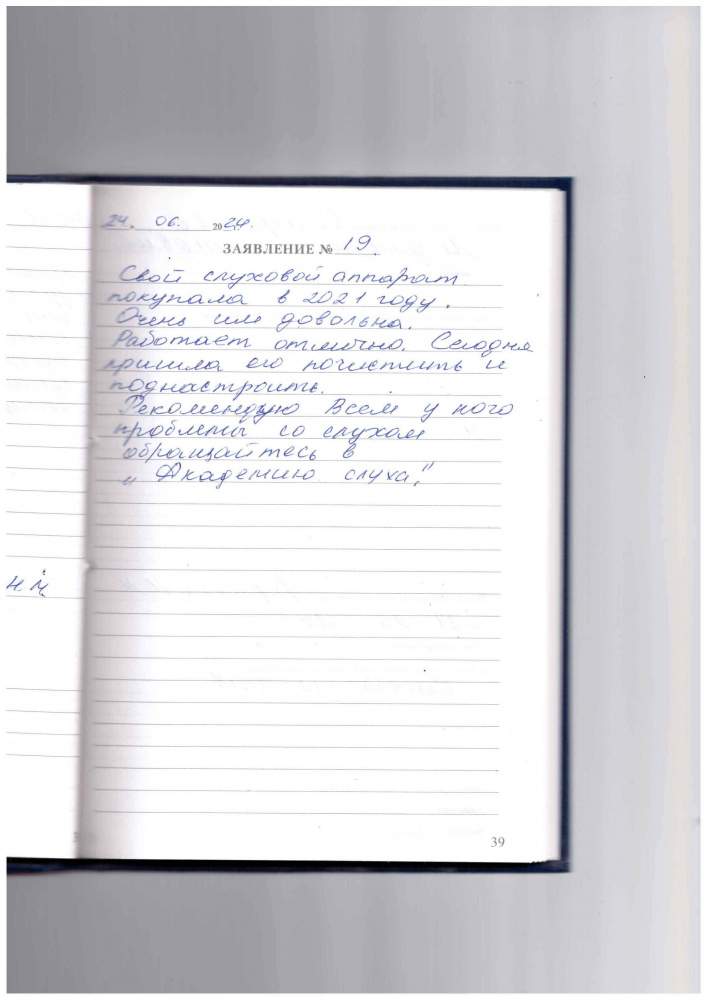 24. 06. 2024.
ЗАЯВЛЕНИЕ № 19.
Свой слуховой аппарат
покупала в 2021 году.
Очень им довольна.
Работает отлично. Сегодня
пришла его почистить и
поднастроить.
Рекомендую Всем у кого
проблемы со слухом
обращайтесь в
„Академию слуха."
н.м.
39